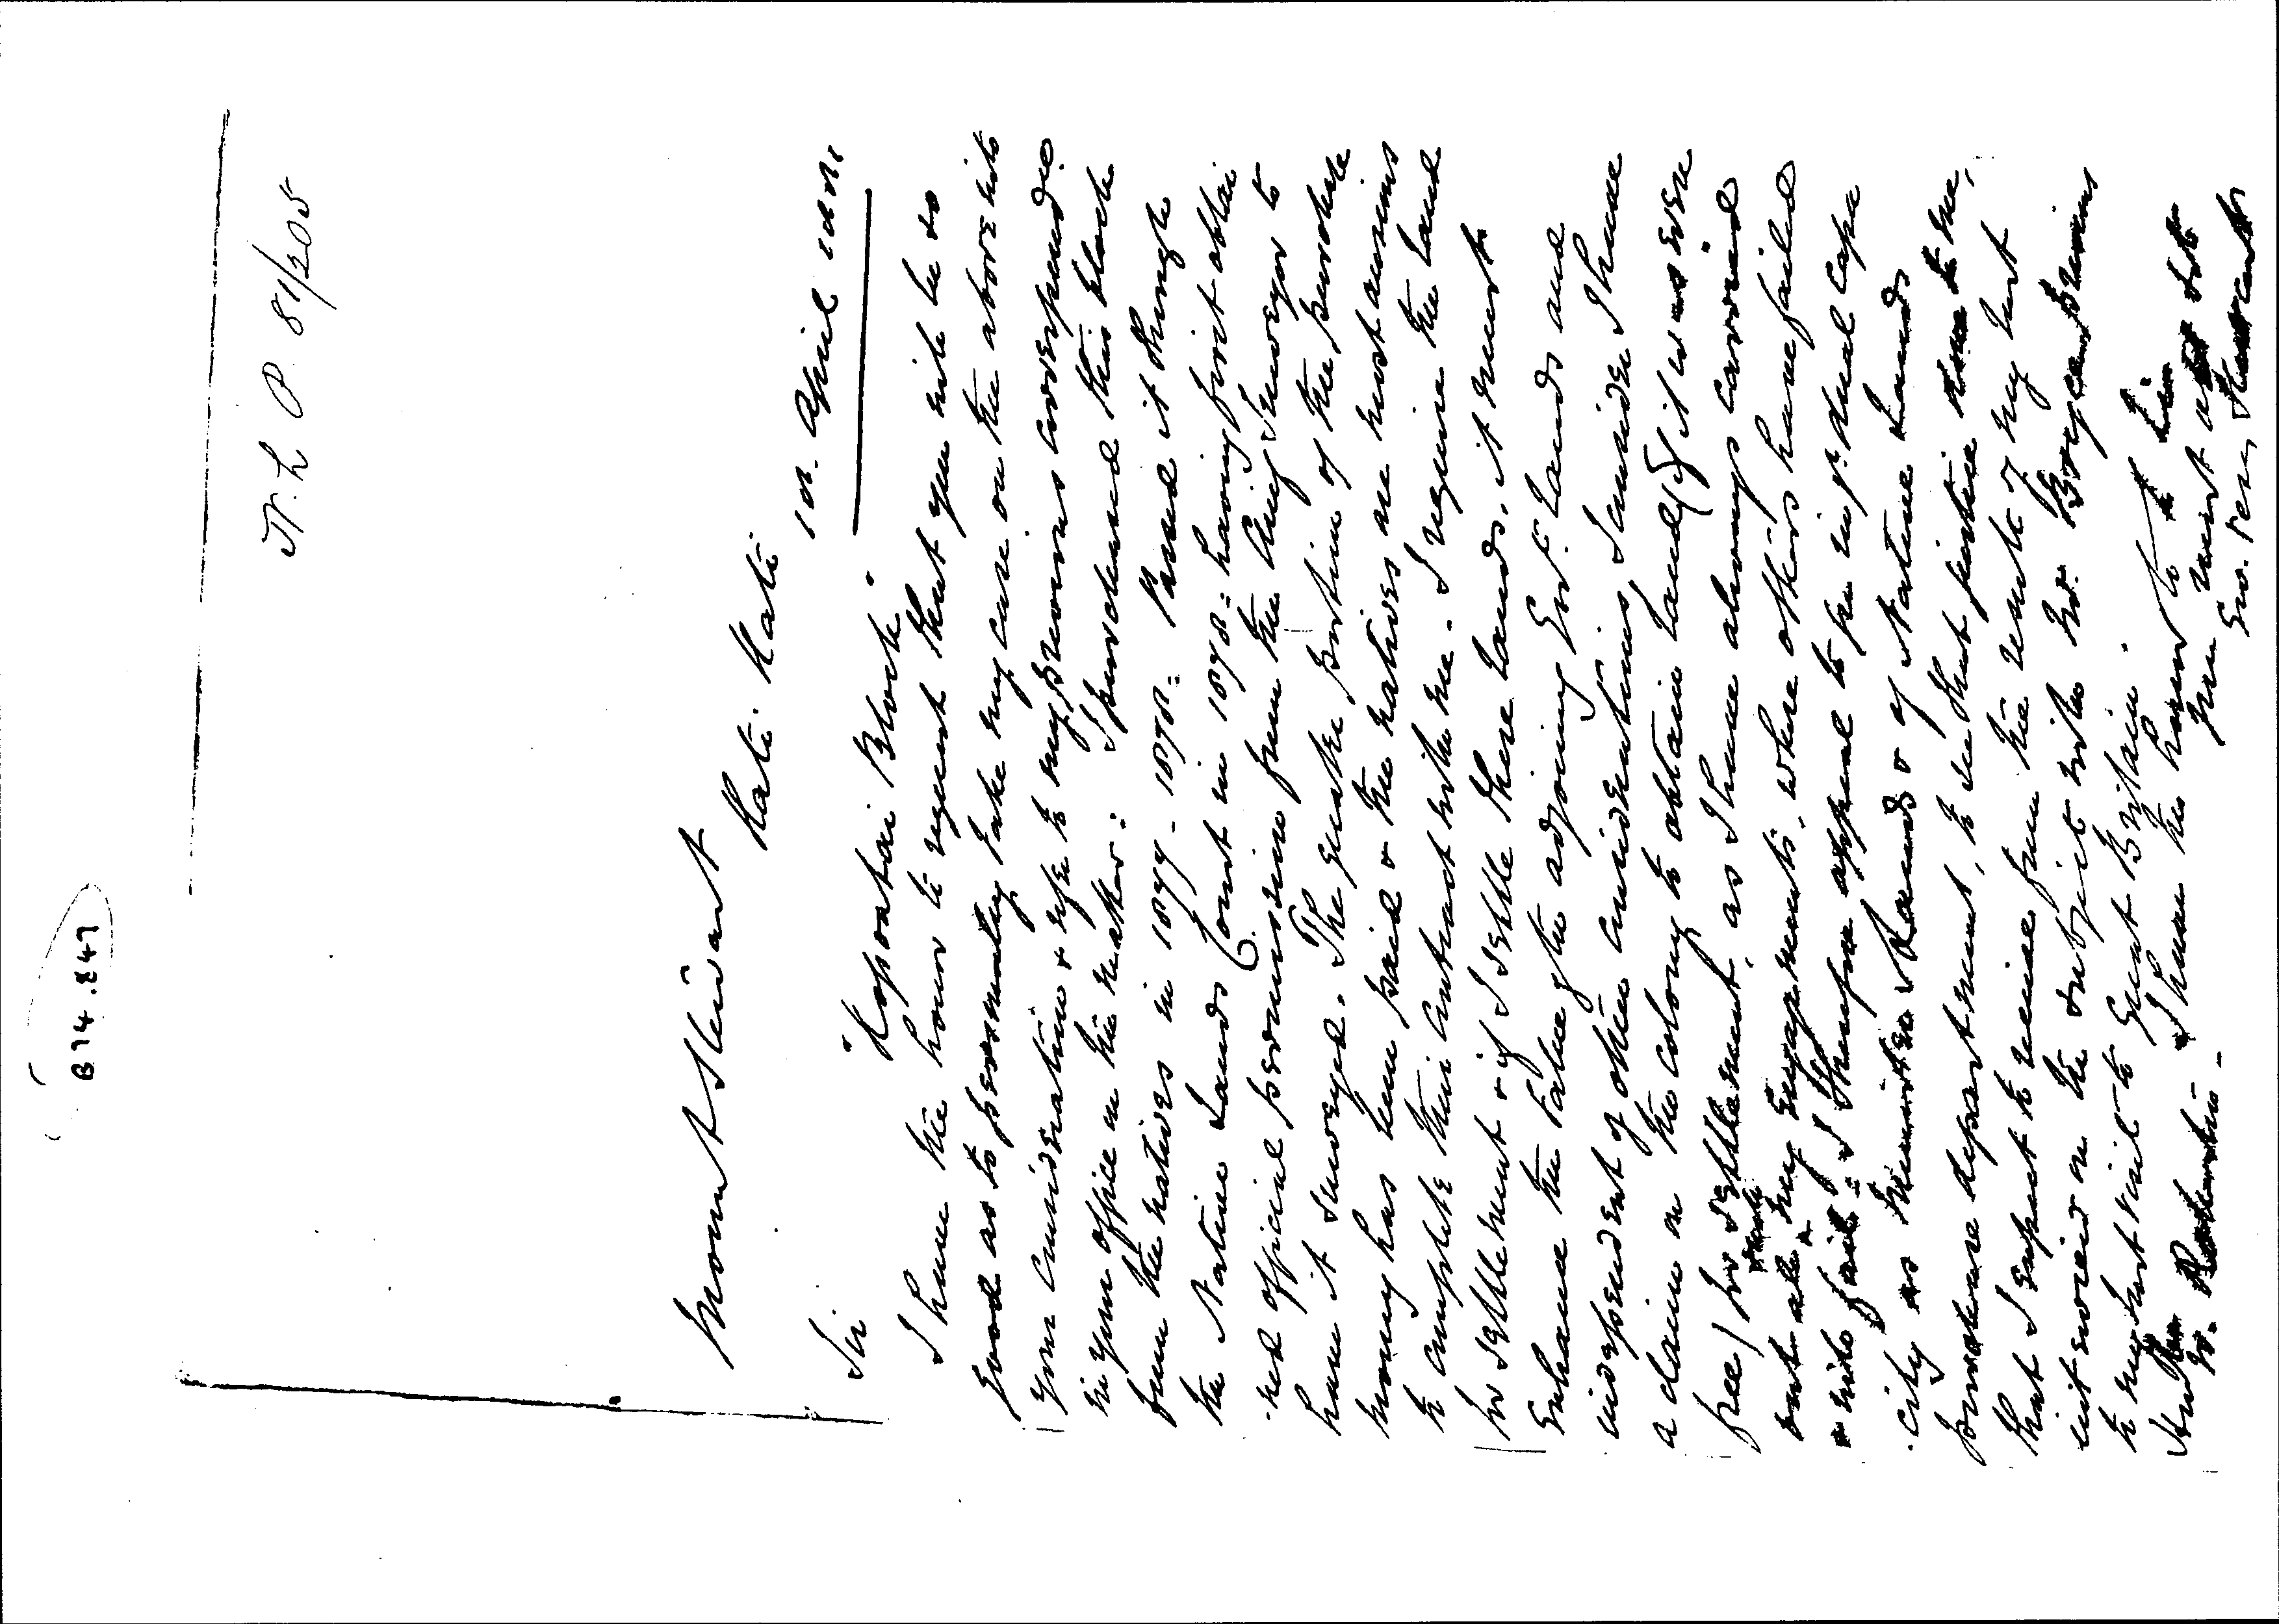 B74.847
N.L.P. 81/205
Mount Stewart
Kati Kati
18. April 1881
Sir
"Hopontai Block"
I have the honor to request that you will be so
good as to personally take my case on the above into
your consideration & refer to my previous correspondce
in your office in the matter: I purchased this block
from the natives in 1877-1878: Passed it through
the Native Lands Court in 1878: having first obtai
ned official permission from the Chief Surveyor to
have it surveyed. The greater portion of the purchase
money has been paid & the natives are most anxious
to complete their contract with me. I require the land
for settlement & if I settle these lands, it must
enhance the value of the adjoining Govt. Lands and
independent of other considerations I consider I have
a claim on the Colony to obtain land (if it was even
free) for settlement, as I have always carried
out all my engagements, where others have failed
& will fail: I therefore appeal to you in yr. dual capa
city as Minister of Lands & of Native Lands
purchase department, to see that justice done to me,
that I expect to receive from the result of my last
interview on the subject with Mr. Bryce previous
to my last visit to Great Britain.
I have the honor to be Sir
Your most obdt Svt
Geo. Vesey Stewart
Hon.
W. Rolleston